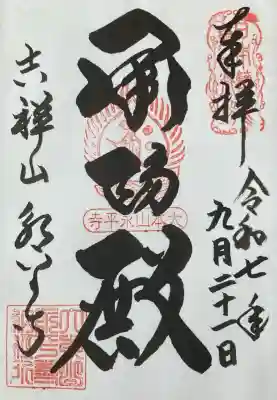 奉拝
令和七年
九月二十一日
承陽殿
大本山永平寺
吉祥山 永平寺